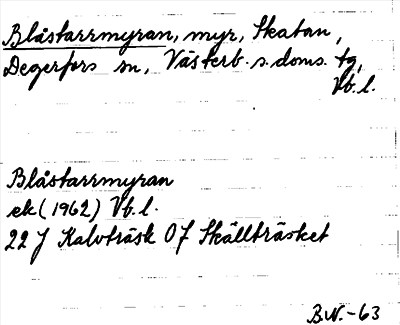 Blåstarrmyran, myr, Skatan,
Degerfors sn, Västerb. s. doms. tg,
Vb. l.
Blåstarrmyran
ek (1962) Vb. l.
22 J Kalvträsk 0 f Skällträsket
B.N.-63